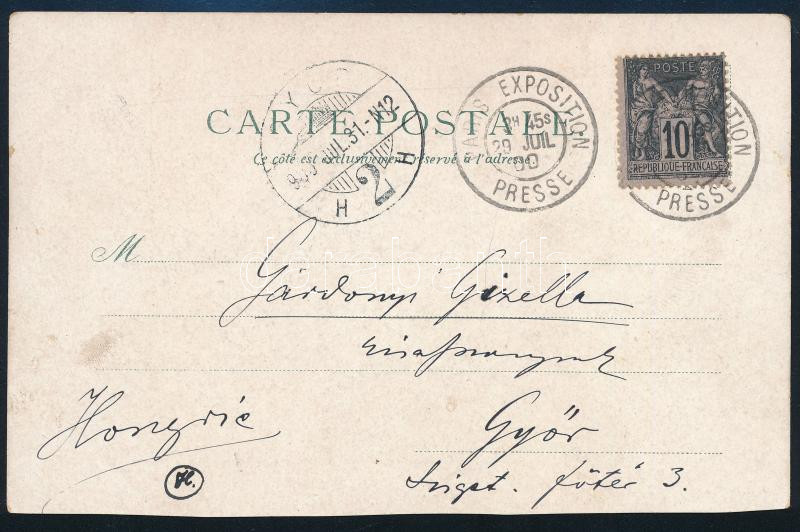 CARTE POSTALE
Ce côté est exclusivement réservé à l'adresse.
GYŐR
900 JUL. 31. N12
2
H H
PARIS EXPOSITION
45S
29 JUIL
00
PRESSE
POSTE
10
REPUBLIQUE FRANÇAISE
EXPOSITION
PRESSE
M
Gárdonyi Gizella
Hongrie
Győr
Sziget. főtér 3.
H.
darabanth